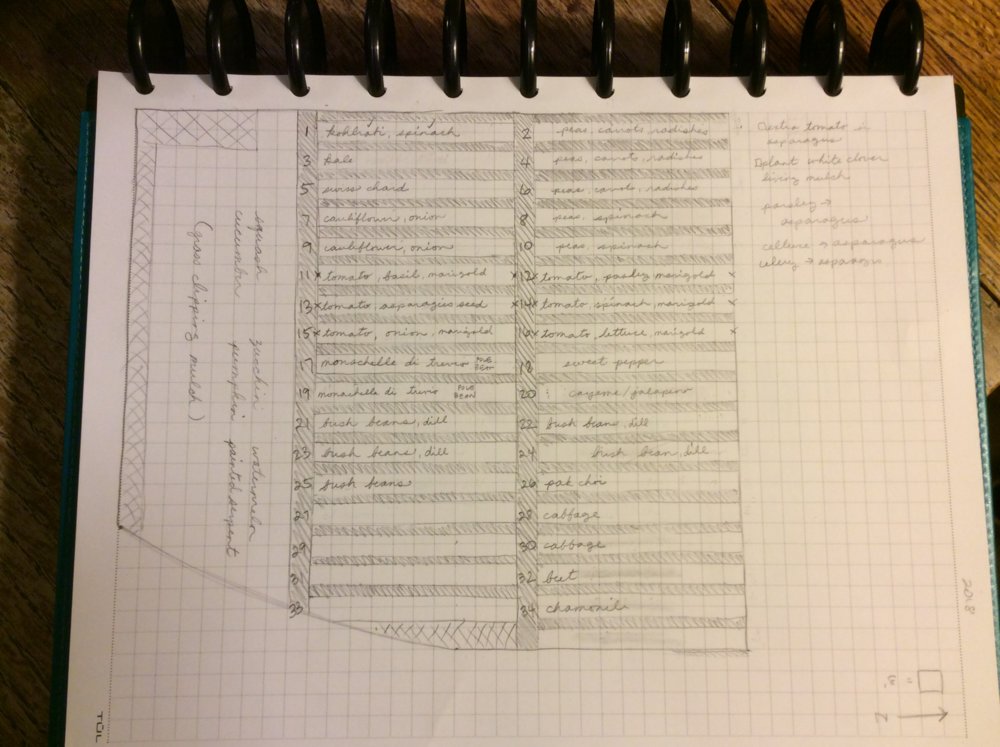 1 kohlrabi, spinach
2 peas, carrots, radishes
3 kale
4 peas, carrots, radishes
5 swiss chard
6 peas, carrots, radishes
7 cauliflower, onion
8 peas, spinach
9 cauliflower, onion
10 peas, spinach
11 x tomato, basil, marigold x
12 x tomato, parsley marigold x
13 x tomato asparagus seed x
14 x tomato, spinach, marigold x
15 x tomato, onion, marigold
16 x tomato, lettuce, marigold x
17 monachelle di trevio POLE BEAN
18 sweet pepper
19 monachelle di trevio POLE BEAN
20 cayenne/jalapeno
21 bush beans, dill
22 bush beans, dill
23 bush beans, dill
24 bush bean, dill
25 bush beans
26 pak choi
27
28 cabbage
29
30 cabbage
31
32 beet
33
34 chamomile
squash zucchini watermelon
cucumber pumpkin painted serpent
(grass clipping mulch)
extra tomato in
asparagus
plant white clover
living mulch
parsley →
asparagus
celery → asparagus
2018
N
TUL